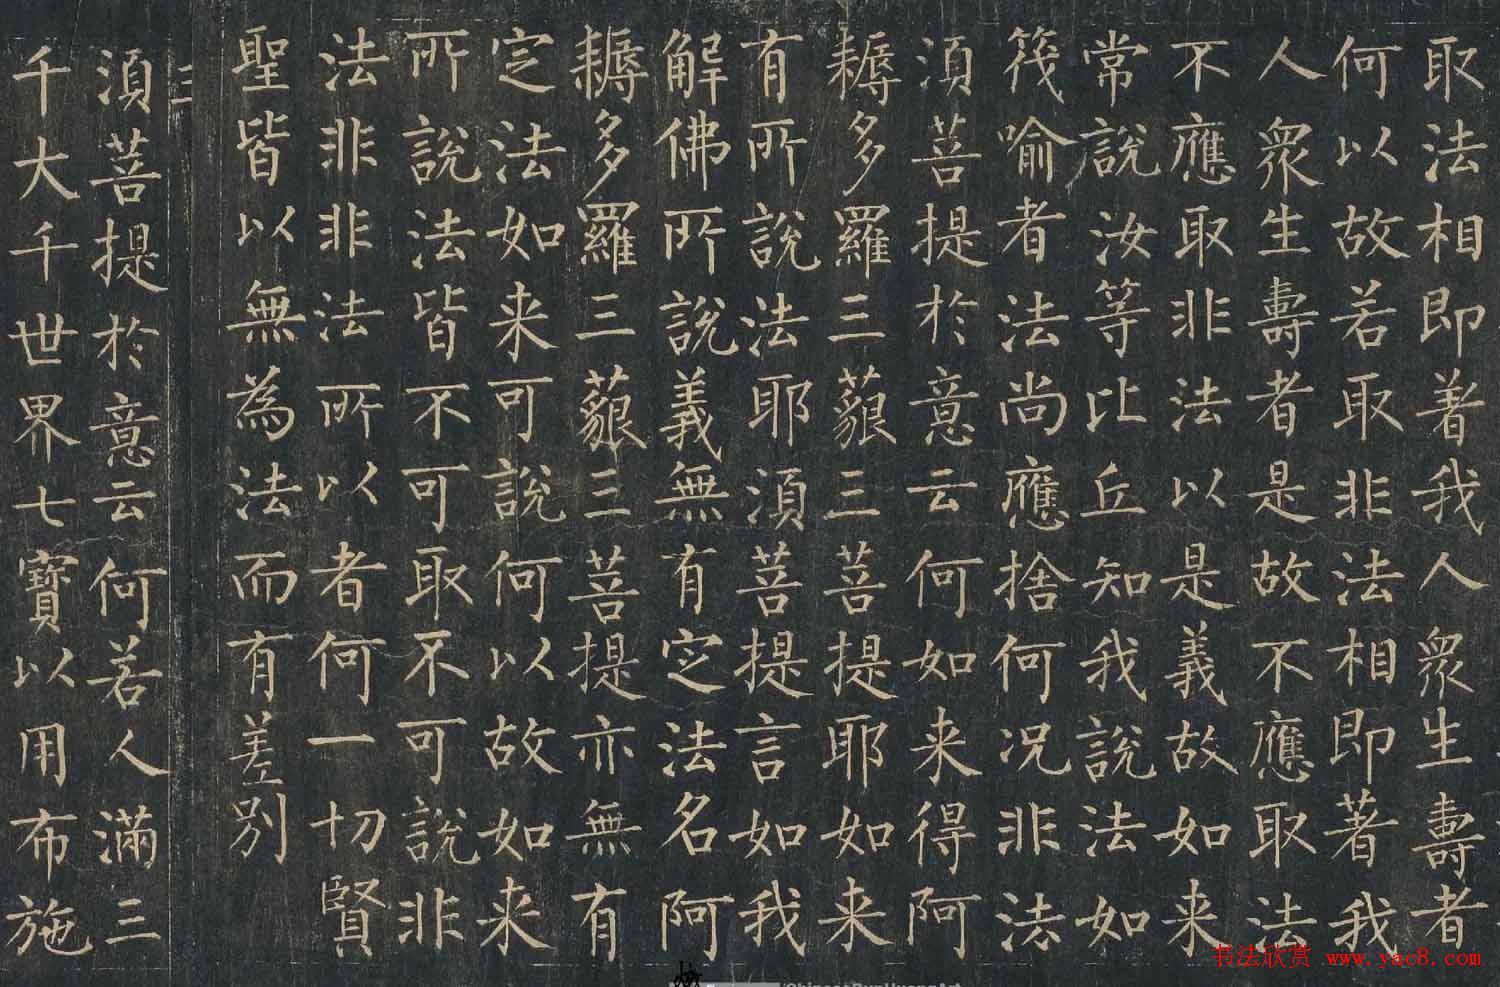 取法相即著我人衆生壽者
何以故若取非法相即著我
人衆生壽者是故不應取法
不應取非法以是義故如来
常說汝等比丘知我說法如
筏喻者法尚應捨何況非法
須菩提於意云何如来得阿
耨多羅三藐三菩提耶如来
有所說法耶須菩提言如我
解佛所說義無有定法名阿
耨多羅三藐三菩提亦無有
定法如来可說何以故如来
所說法皆不可取不可說非
法非非法所以者何一切賢
聖皆以無為法而有差別
三
須菩提於意云何若人滿三
千大千世界七寶以用布施
书法欣赏 www.yac8.com